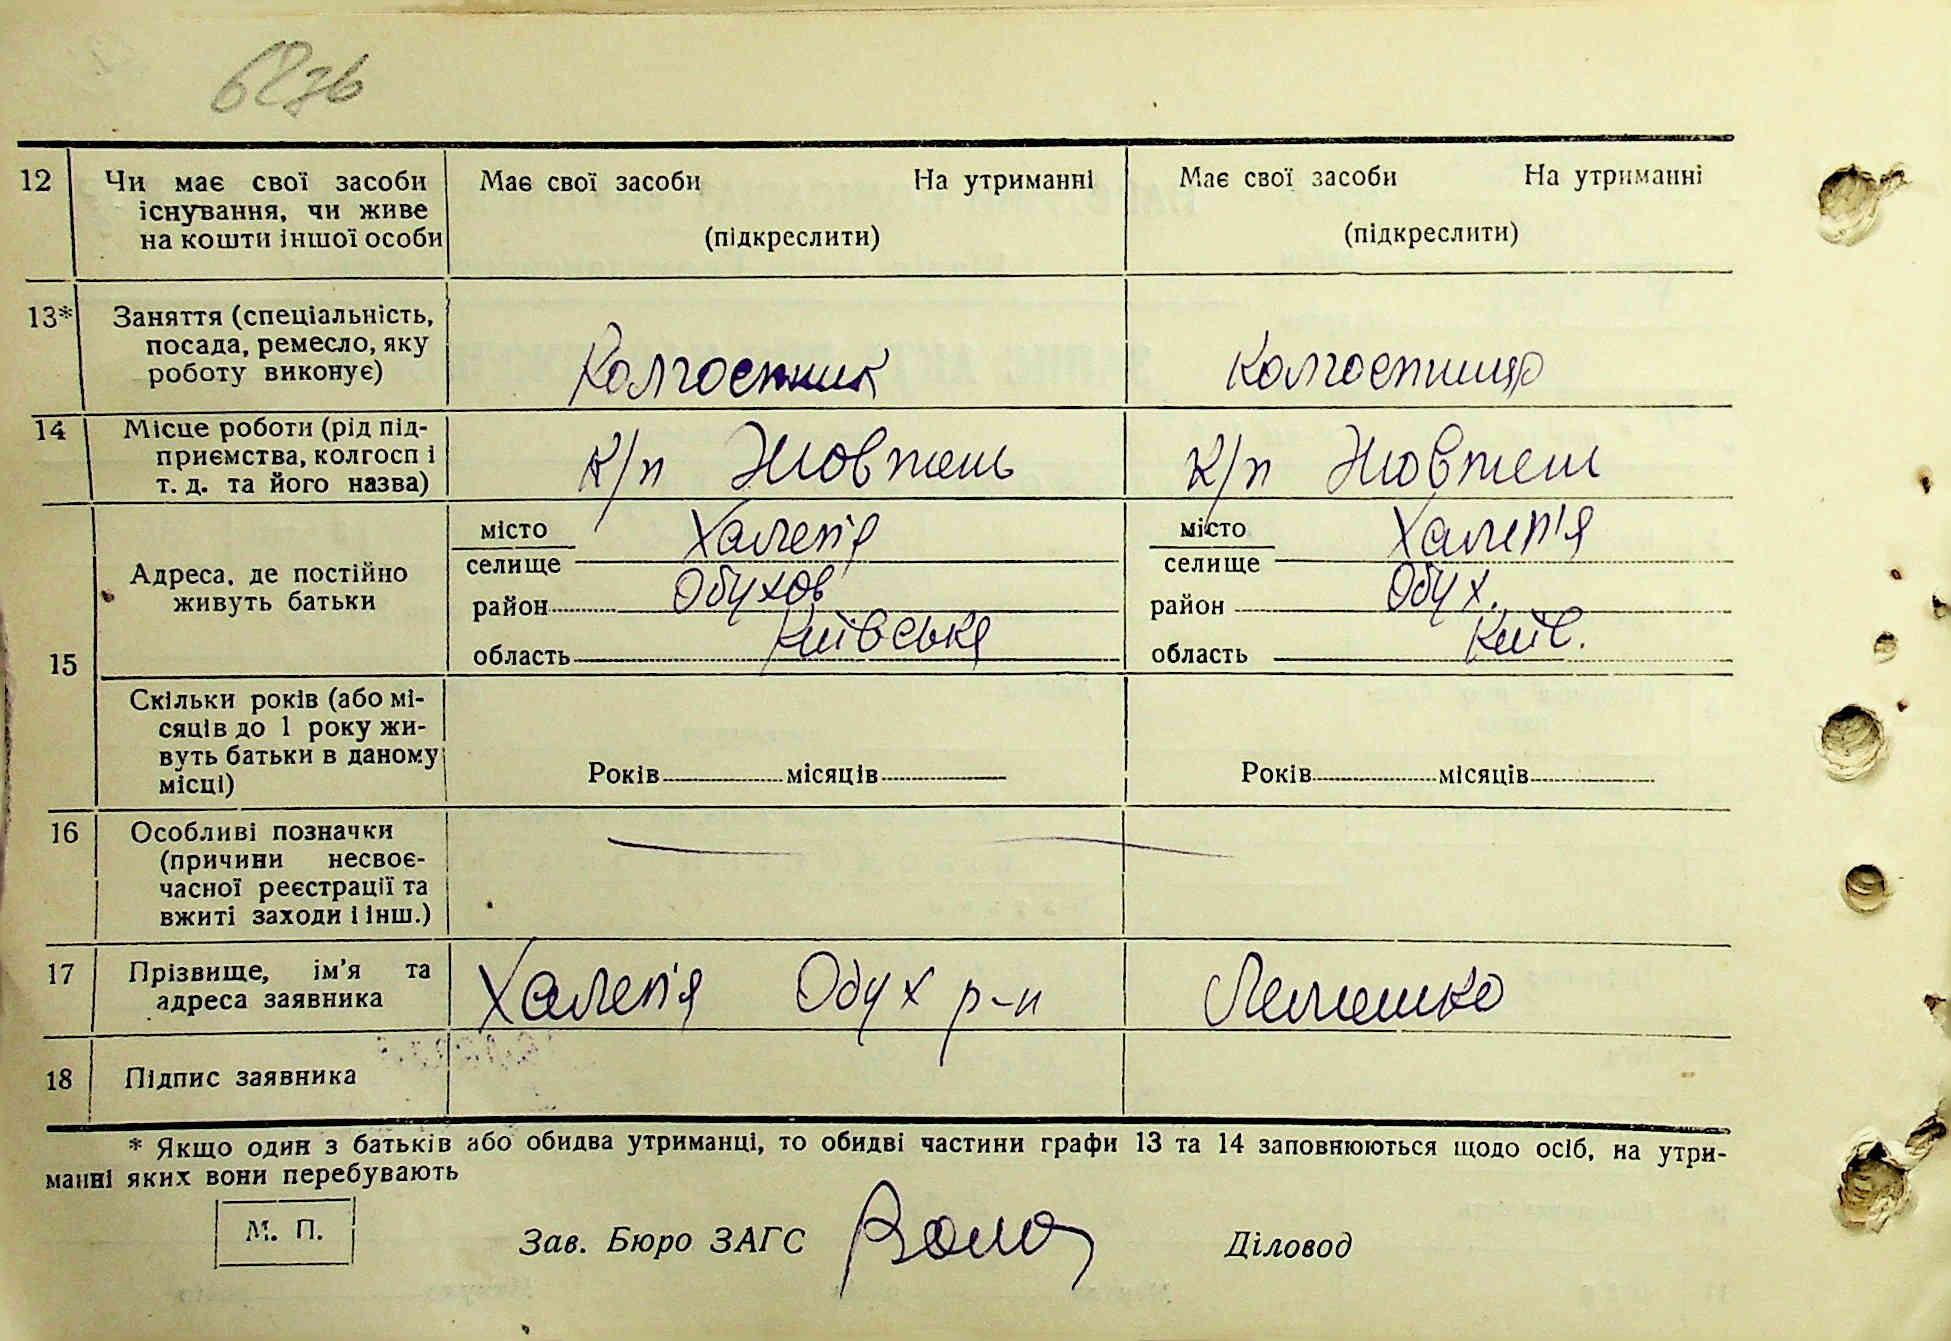 62зв
12 Чи має свої засоби існування, чи живе на кошти іншої особи
Має свої засоби На утриманні
(підкреслити)
Має свої засоби На утриманні
(підкреслити)
13* Заняття (спеціальність,
посада, ремесло, яку
роботу виконує)
Колгоспник
Колгоспниця
14 Місце роботи (рід під-
приємства, колгосп і
т. д. та його назва)
к/п Жовтень
к/п Жовтень
15 Адреса, де постійно
живуть батьки
місто
селище Халеп'я
район Обухов
область Київська
місто
селище Халеп'я
район Обух.
область Київ.
Скільки років (або мі-
сяців до 1 року жи-
вуть батьки в даному
місці)
Років місяців
Років місяців
16 Особливі позначки
(причини несвоє-
часної реєстрації та
вжиті заходи і інш.)
17 Прізвище, ім'я та
адреса заявника
Халеп'я Обух р-н
Лемешко
18 Підпис заявника
* Якщо один з батьків або обидва утриманці, то обидві частини графи 13 та 14 заповнюються щодо осіб, на утри-
манні яких вони перебувають
М. П.
Зав. Бюро ЗАГС
Діловод